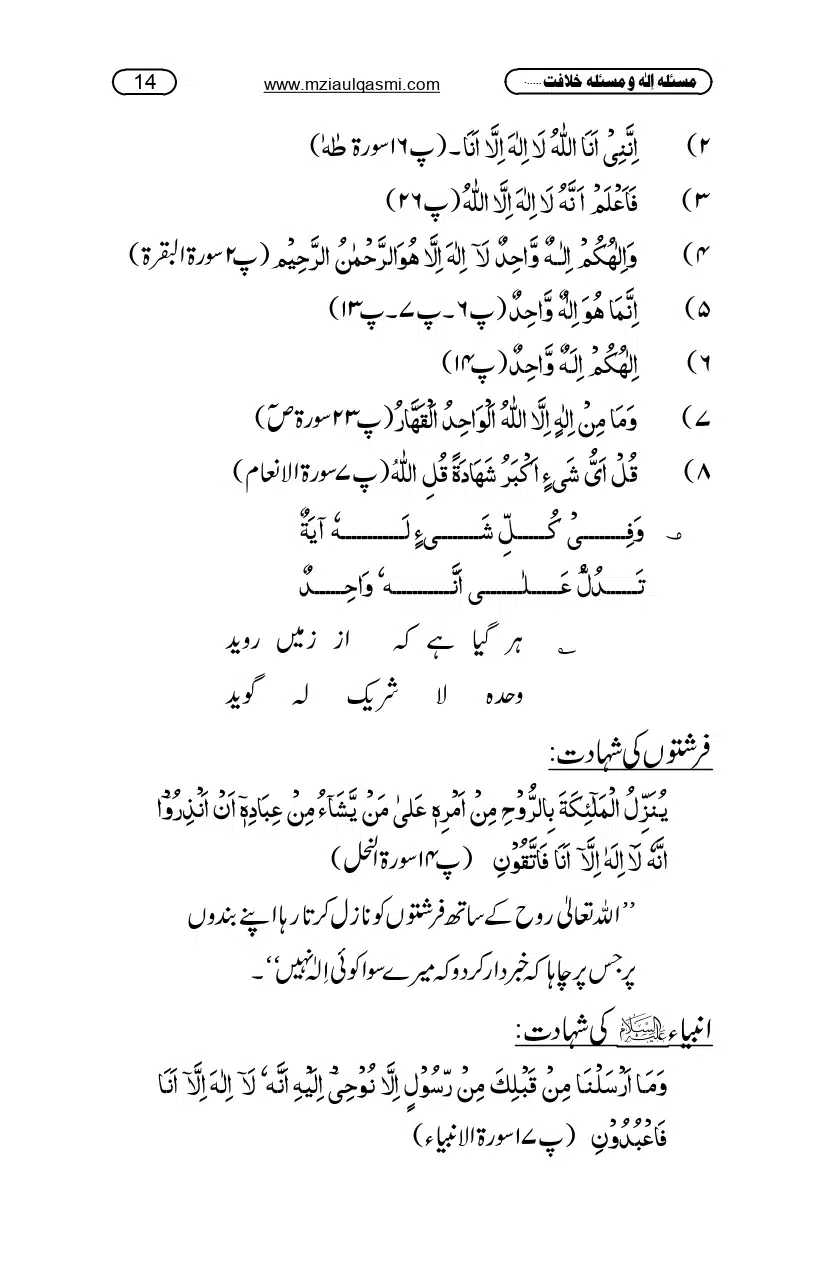 مسئلہ اِلٰہ و مسئلہ خلافت ...... www.mziaulqasmi.com 14
۲) اِنَّنِیْ اَنَا اللّٰہُ لَا اِلٰہَ اِلَّا اَنَا۔ (پ۱۶ سورۃ طٰہٰ)
۳) فَاَعْلَمْ اَنَّہُ لَا اِلٰہَ اِلَّا اللّٰہُ (پ۲۶)
۴) وَاِلٰھُکُمْ اِلٰـہٌ وَّاحِدٌ لَآ اِلٰہَ اِلَّا ھُوَالرَّحْمٰنُ الرَّحِیْم (پ۲ سورۃ البقرۃ)
۵) اِنَّمَا ھُوَ اِلٰہٌ وَّاحِدٌ (پ۶۔پ۷۔پ۱۳)
۶) اِلٰھُکُمْ اِلَہٌ وَّاحِدٌ (پ۱۴)
۷) وَمَا مِنْ اِلٰہٍ اِلَّا اللّٰہُ الْوَاحِدُ الْقَھَّارُ (پ۲۳ سورۃ صٓ)
۸) قُلْ اَیُّ شَیءٍ اَکْبَرُ شَھَادَۃً قُلِ اللّٰہُ (پ۷ سورۃ الانعام)
؎ وَفِـــــیْ کُـــــلِّ شَـــــیءٍ لَـــــہٗ آیَۃٌ
تَـــــدُلُّ عَـــــلٰـــــی اَنَّـــــہٗ وَاحِـــــدٌ
؎ ہر گیا ہے کہ از زمیں روید
وحدہ لا شریک لہ گوید
فرشتوں کی شہادت:
یُنَزِّلُ الْمَلٰٓئِکَۃَ بِالرُّوْحِ مِنْ اَمْرِہٖ عَلیٰ مَنْ یَّشَآءُ مِنْ عِبَادِہٖٓ اَنْ اَنْذِرُوْٓا
اَنَّہٗ لَآ اِلٰہَ اِلَّآ اَنَا فَاتَّقُوْنِ (پ۱۴ سورۃ النحل)
’’اللہ تعالیٰ روح کے ساتھ فرشتوں کو نازل کرتا رہا اپنے بندوں
پر جس پر چاہا کہ خبردار کردو کہ میرے سوا کوئی اِلٰہ نہیں‘‘۔
انبیاء علیہ السلام کی شہادت:
وَمَا اَرْسَلْنَا مِنْ قَبْلِکَ مِنْ رَّسُوْلٍ اِلَّا نُوْحِیْٓ اِلَیْہِ اَنَّہٗ لَآ اِلٰہَ اِلَّآ اَنَا
فَاعْبُدُوْنِ (پ۱۷ سورۃ الانبیاء)